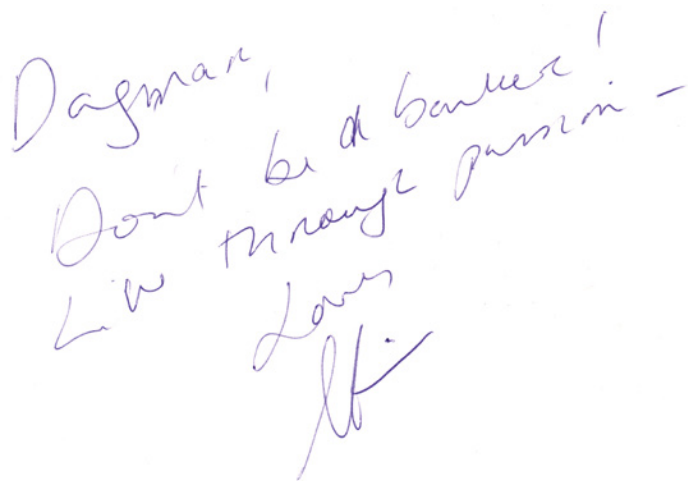 Dagmar,
Don't be a banker!
Live through passion -
Love,